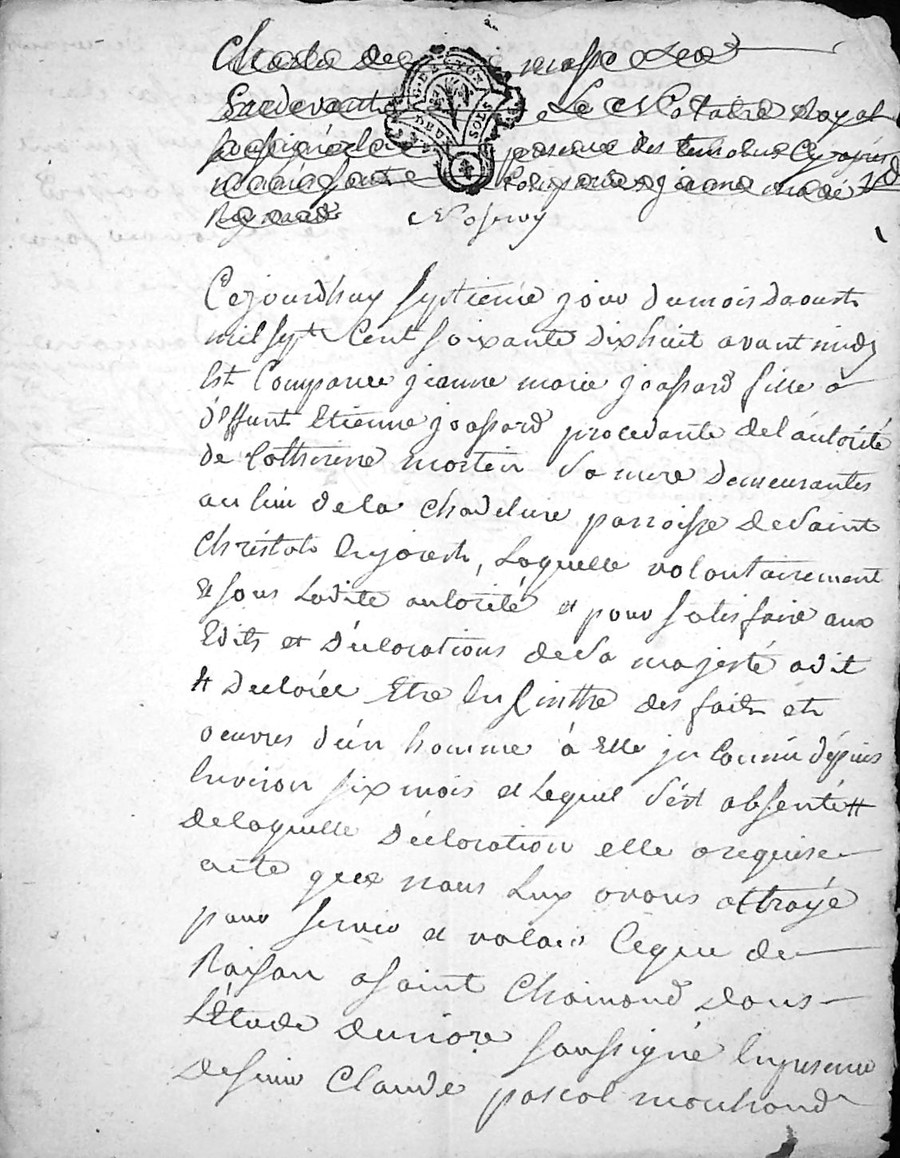 Pardevant Le Notaire Royal
soussigné presence des temoins cy apres
G. DE LYON
DEUX SOLS
Cejourdhuy septieme jour du mois daoust
mil sept Cent soixante dixhuit avant midy
Est Comparue jeanne marie joassard fille à
déffunt Etienne joassard procedante de l'autorité
de Catherine mortier Sa mere demeurantes
au lieu de la parroisse de Saint
Christoh En jarest, Laquelle volontairement
Et sous Ladite autorité et pour satisfaire aux
Edits et déclarations de Sa majesté a dit
# declaré Etre Enceinte des faits et
oeuvres d'un homme à Elle inconnu depuis
Environ six mois et Lequel s'est absenté #
de laquelle déclaration elle a requise
acte que nous Luy avons octroyé
pour servir et valoir Ce que de
Raison a Saint Chamond dans
L'Etude du notre soussigné En presence
de sieur Claude pascal